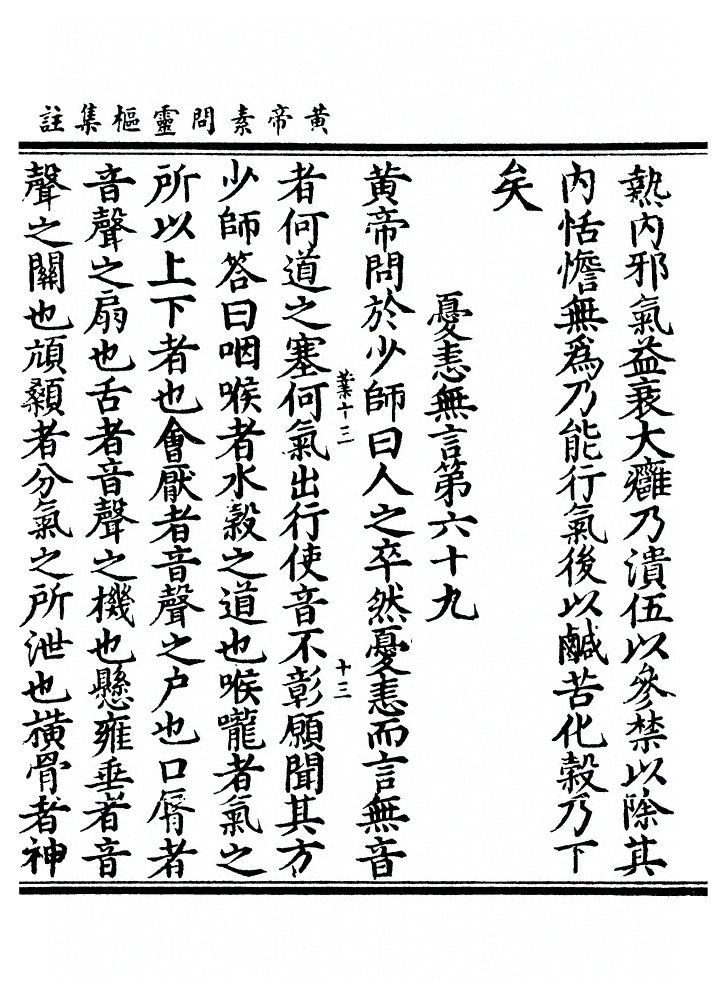 黃帝素問靈樞集註
熱內邪氣益衰大癰乃潰伍以參禁以除其
內恬憺無為乃能行氣後以鹹苦化穀乃下
矣
憂恚無言第六十九
黃帝問於少師曰人之卒然憂恚而言無音
業十三
十三
者何道之塞何氣出行使音不彰願聞其方
少師答曰咽喉者水穀之道也喉嚨者氣之
所以上下者也會厭者音聲之户也口脣者
音聲之扇也舌者音聲之機也懸雍垂者音
聲之關也頏顙者分氣之所泄也橫骨者神